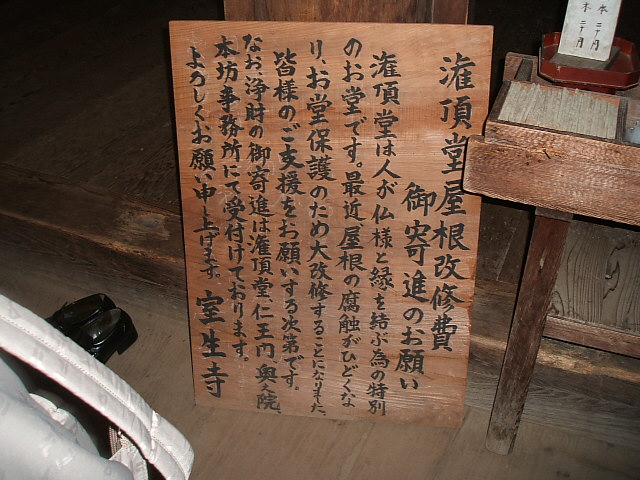 灌頂堂屋根改修費
御寄進のお願い
灌頂堂は人が仏様と縁を結ぶ為の特別
のお堂です。最近屋根の腐蝕がひどくな
り、お堂保護のため大改修することになりました、
皆様のご支援をお願いする次第です。
なお、浄財の御寄進は灌頂堂、仁王門、奥の院、
本坊事務所にて受付けております。
よろしくお願い申し上げます。 室生寺